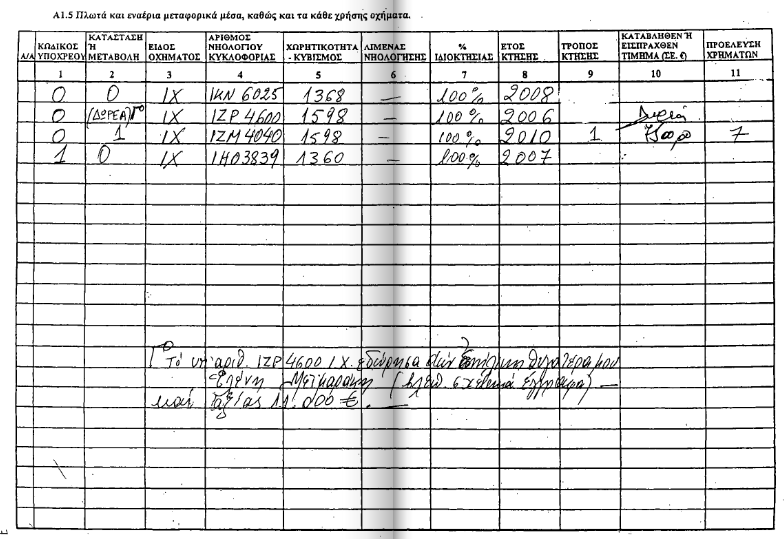 A1.5 Πλωτά και εναέρια μεταφορικά μέσα, καθώς και τα κάθε χρήσης οχήματα.
Α/Α ΚΩΔΙΚΟΣ ΥΠΟΧΡΕΟΥ ΚΑΤΑΣΤΑΣΗ Ή ΜΕΤΑΒΟΛΗ ΕΙΔΟΣ ΟΧΗΜΑΤΟΣ ΑΡΙΘΜΟΣ ΝΗΟΛΟΓΙΟΥ ΚΥΚΛΟΦΟΡΙΑΣ ΧΩΡΗΤΙΚΟΤΗΤΑ - ΚΥΒΙΣΜΟΣ ΛΙΜΕΝΑΣ ΝΗΟΛΟΓΗΣΗΣ % ΙΔΙΟΚΤΗΣΙΑΣ ΕΤΟΣ ΚΤΗΣΗΣ ΤΡΟΠΟΣ ΚΤΗΣΗΣ ΚΑΤΑΒΛΗΘΕΝ Ή ΕΙΣΠΡΑΧΘΕΝ ΤΙΜΗΜΑ (ΣΕ. €) ΠΡΟΕΛΕΥΣΗ ΧΡΗΜΑΤΩΝ
1 2 3 4 5 6 7 8 9 10 11
0 0 ΙΧ ΙΚΝ 6025 1368 — 100% 2008
0 (ΔΩΡΕΑ) ΙΧ ΙΖΡ 4600 1598 — 100% 2006 Δωρεά
0 1 ΙΧ ΙΖΜ 4040 1598 — 100% 2010 1 7
1 0 ΙΧ ΙΗΟ3839 1360 — 100% 2007
Τό ὑπ' αριθ. ΙΖΡ 4600 Ι.Χ. εδώρησα στήν θυγατέρα μου
Ελένη Μεϊμαράκη
καί αξίας 11.000 €. —